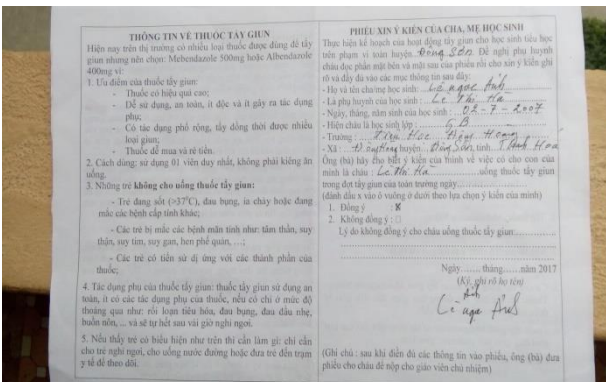 THÔNG TIN VỀ THUỐC TẨY GIUN
Hiện nay trên thị trường có nhiều loại thuốc được dùng để tẩy
giun nhưng nên chọn: Mebendazole 500mg hoặc Albendazole
400mg vì:
1. Ưu điểm của thuốc tẩy giun:
- Thuốc có hiệu quả cao;
- Dễ sử dụng, an toàn, ít độc và ít gây ra tác dụng
phụ;
- Có tác dụng phổ rộng, tẩy đồng thời được nhiều
loại giun;
- Thuốc dễ mua và rẻ tiền.
2. Cách dùng: sử dụng 01 viên duy nhất, không phải kiêng ăn
uống.
3. Những trẻ không cho uống thuốc tẩy giun:
- Trẻ đang sốt (>37°C), đau bụng, ỉa chảy hoặc đang
mắc các bệnh cấp tính khác;
- Các trẻ bị mắc các bệnh mãn tính như: tâm thần, suy
thận, suy tim, suy gan, hen phế quản, …;
- Các trẻ có tiền sử dị ứng với các thành phần của
thuốc;
4. Tác dụng phụ của thuốc tẩy giun: thuốc tẩy giun sử dụng an
toàn, ít có các tác dụng phụ của thuốc, nếu có chỉ ở mức độ
thoáng qua như: rối loạn tiêu hóa, đau bụng, đau đầu nhẹ,
buồn nôn, ... và sẽ tự hết sau vài giờ nghỉ ngơi.
5. Nếu thấy trẻ có biểu hiện như trên thì cần làm gì: chỉ cần
cho trẻ nghỉ ngơi, cho uống nước đường hoặc đưa trẻ đến trạm
y tế để theo dõi.
PHIẾU XIN Ý KIẾN CỦA CHA, MẸ HỌC SINH
Thực hiện kế hoạch của hoạt động tẩy giun cho học sinh tiểu học
trên phạm vi toàn huyện Đông Sơn. Đề nghị phụ huynh
cháu đọc phần mặt bên và mặt sau của phiếu rồi cho xin ý kiến ghi
rõ và đầy đủ vào các mục thông tin sau đây:
- Họ và tên cha/mẹ học sinh: Lê Ngọc Ánh
- Là phụ huynh của học sinh: Lê Thị Hà
- Ngày, tháng, năm sinh của học sinh: 02-7-2007
- Hiện cháu là học sinh lớp:
- Trường: Tiểu Học Đông Hoàng
- Xã: Đông Hoàng huyện Đông Sơn, tỉnh Thanh Hoá
Ông (bà) hãy cho biết ý kiến của mình về việc có cho con của
mình là cháu: Lê Thị Hà uống thuốc tẩy giun
trong đợt tẩy giun của toàn trường ngày
(đánh dấu x vào ô vuông ở dưới theo lựa chọn ý kiến của mình)
1. Đồng ý : ☒
2. Không đồng ý : □
Lý do không đồng ý cho cháu uống thuốc tẩy giun
Ngày...... tháng......năm 2017
(Ký, ghi rõ họ tên)
Ánh
Lê Ngọc Ánh
(Ghi chú : sau khi điền đủ các thông tin vào phiếu, ông (bà) đưa
phiếu cho cháu để nộp cho giáo viên chủ nhiệm)